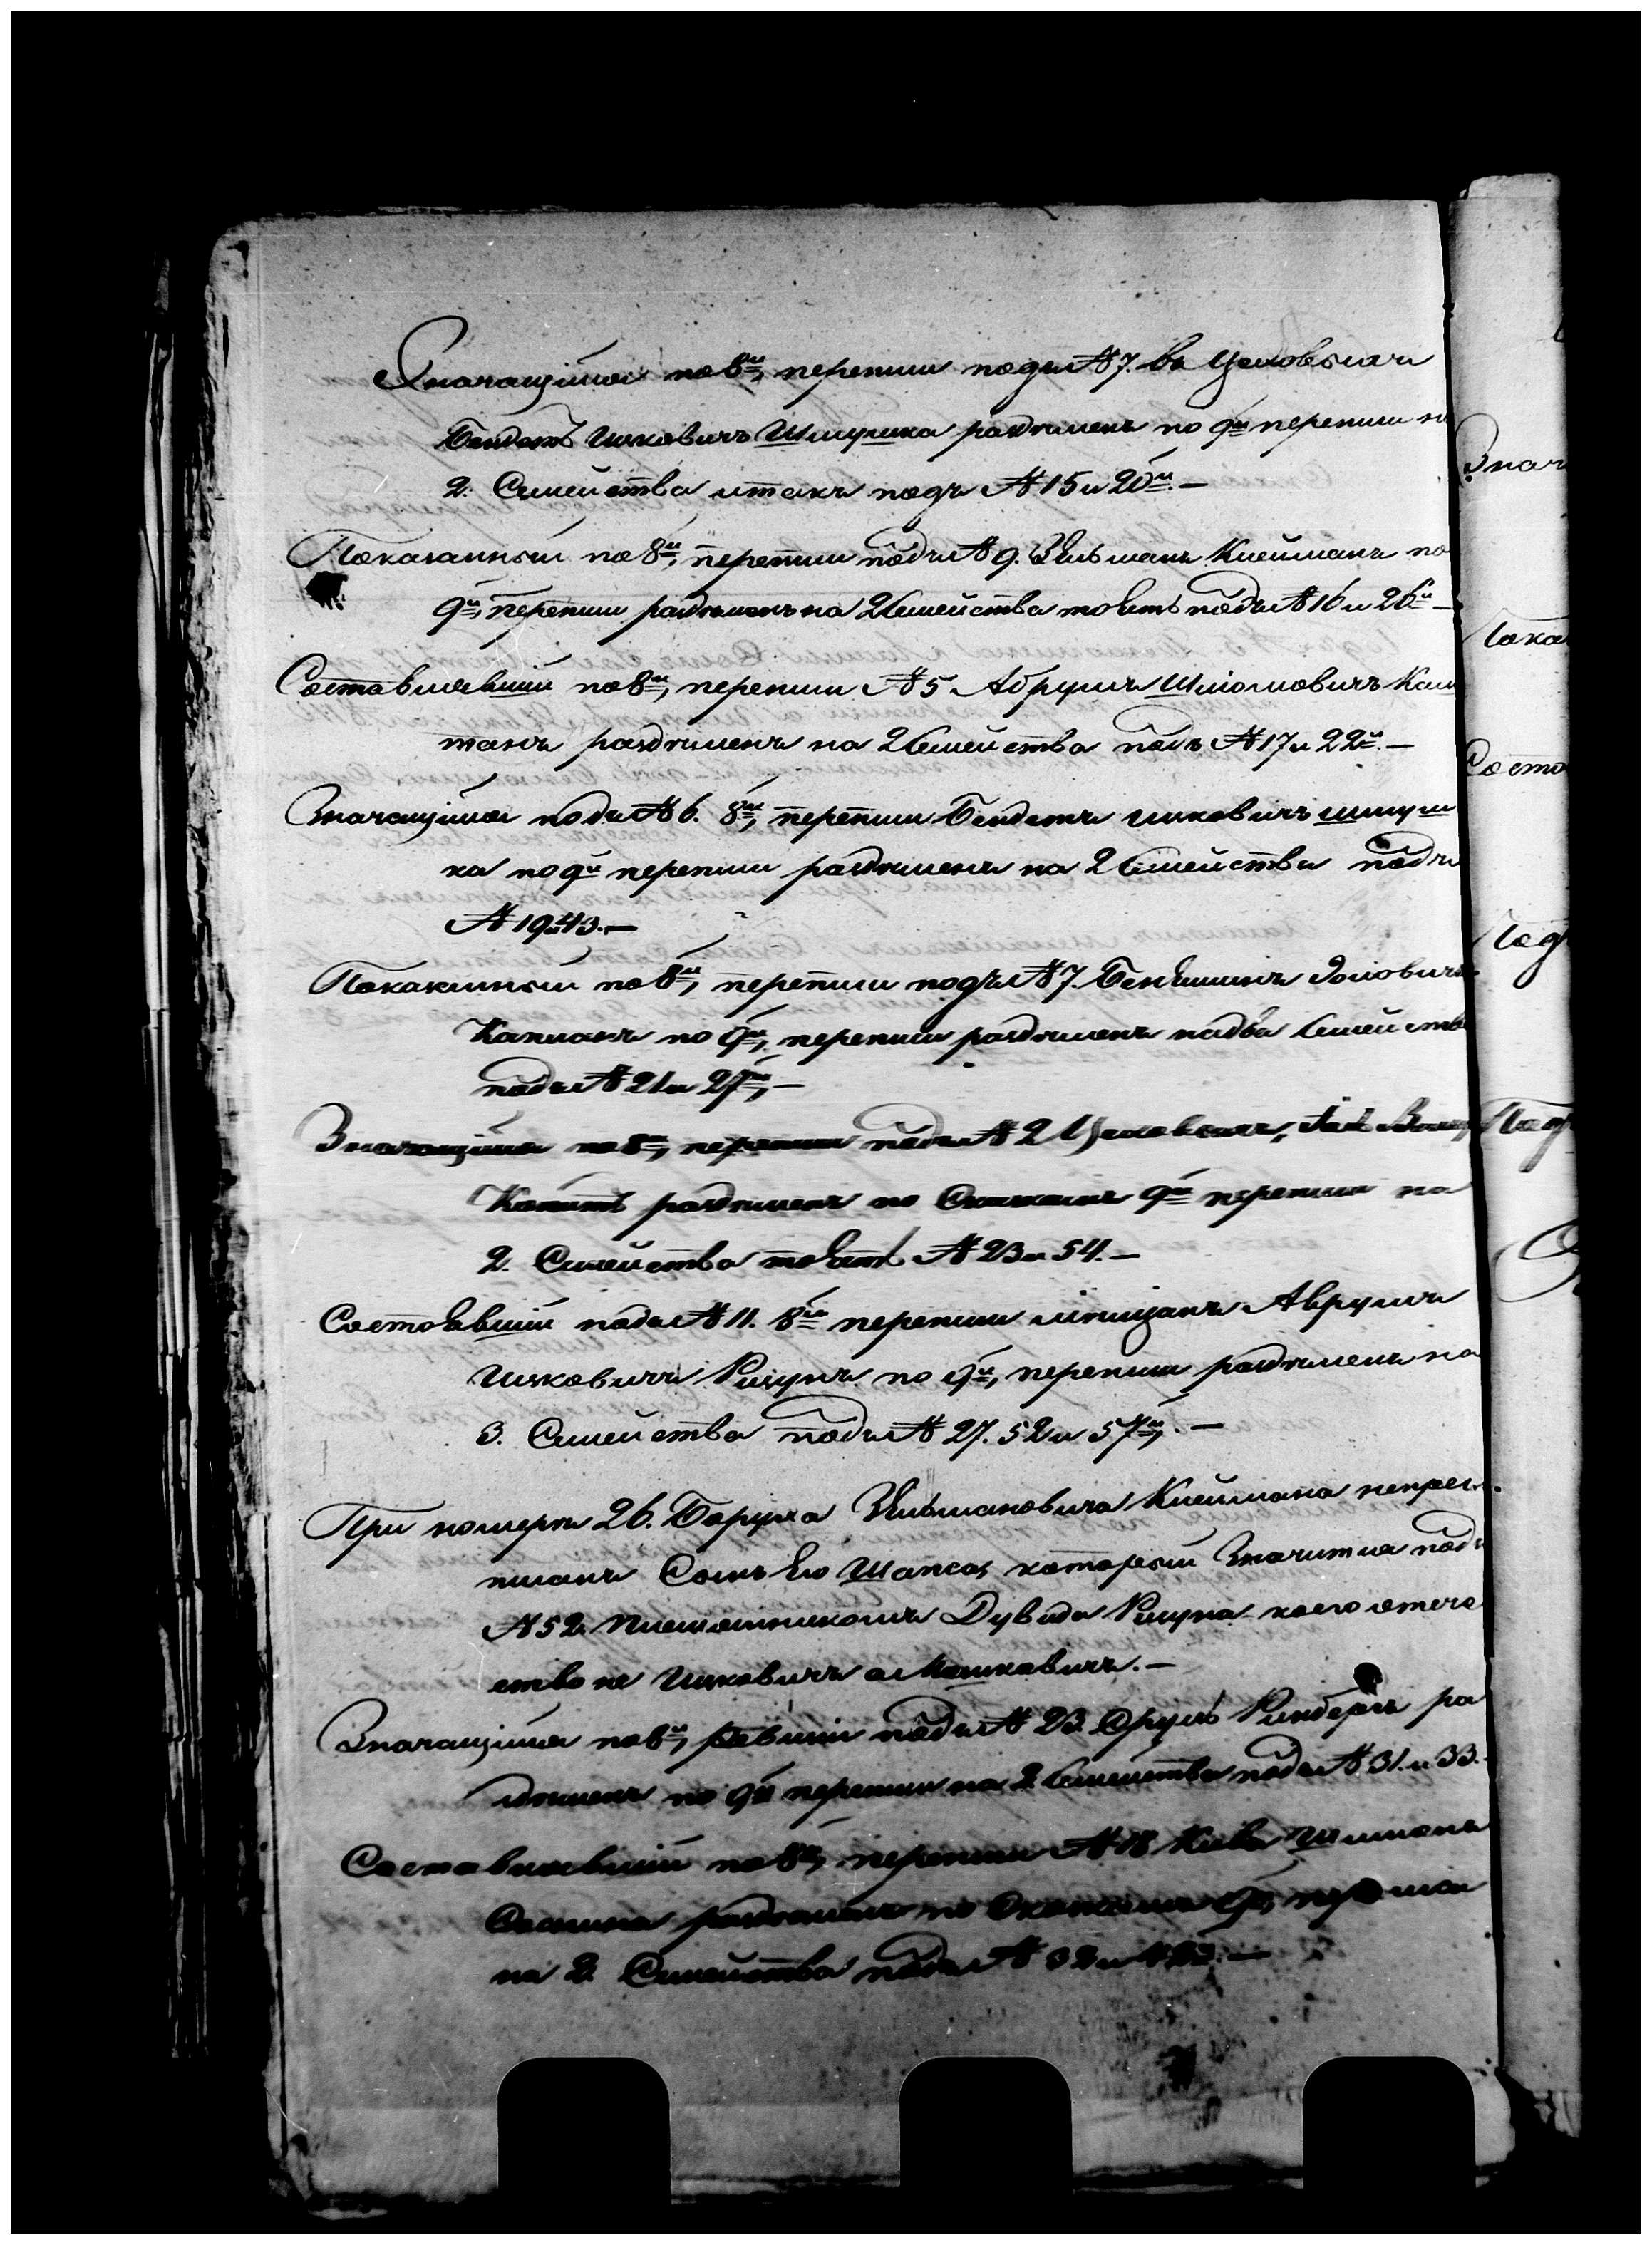 Значащійся по 8й, переписи подъ № 7. въ Цеховыхъ
Бендетъ Ицковичъ Шмушка раздѣленъ по 9й переписи на
2. Семейства итакъ подъ № 15 и 20й. —
Показанный по 8й, переписи подъ № 9. Зельманъ Клейманъ по
9й, переписи раздѣленъ на 2 Семейства то есть подъ № 16 и 26й —
Составлявшій по 8й, переписи № 5 Абрумъ Шліомовичъ Каш
танъ раздѣленъ на 2 Семейства подъ № 17 и 22й. —
Значащійся подъ № 6. 8й, переписи Бендетъ Ицковичъ шмуш
ка по 9й переписи раздѣленъ на 2 Семейства подъ
№ 19 и 43. —
Показанный по 8й, переписи подъ № 7. Беніаминъ
Капланъ по 9й, переписи раздѣленъ на два Семейства
подъ № 21 и 27й, —
Значащійся по 8й, переписи подъ № 2 Цеховыхъ,
раздѣленъ по Сказкамъ 9й переписи на
2. Семейства то есть № 23 и 54. —
Состоявшій подъ № 11. 8й переписи мѣщанъ Аврумъ
Ицковичъ Рицунъ по 9й, переписи раздѣленъ на
3. Семейства подъ № 27. 52 и 57й, . —
При номерѣ 26. Боруха Зельмановича Клеймана непреп.
писанъ Сынъ Его Шапса, который Значится подъ
№ 52. племянникомъ Дувида Рицуна коего отече
ство не Ицковичъ а Мошковичъ. —
Значащійся по 8й, ревизіи подъ № 23. Срулъ ра
здѣленъ по 9й переписи на 2. Семейства подъ № 31. и 33.
Составлявшій по 8й, переписи № 18 Шлимонъ
раздѣленъ по Сказкамъ 9й, переписи
на 2. Семейства подъ № 32 и
Знач
Пока
Состо
Под
Под